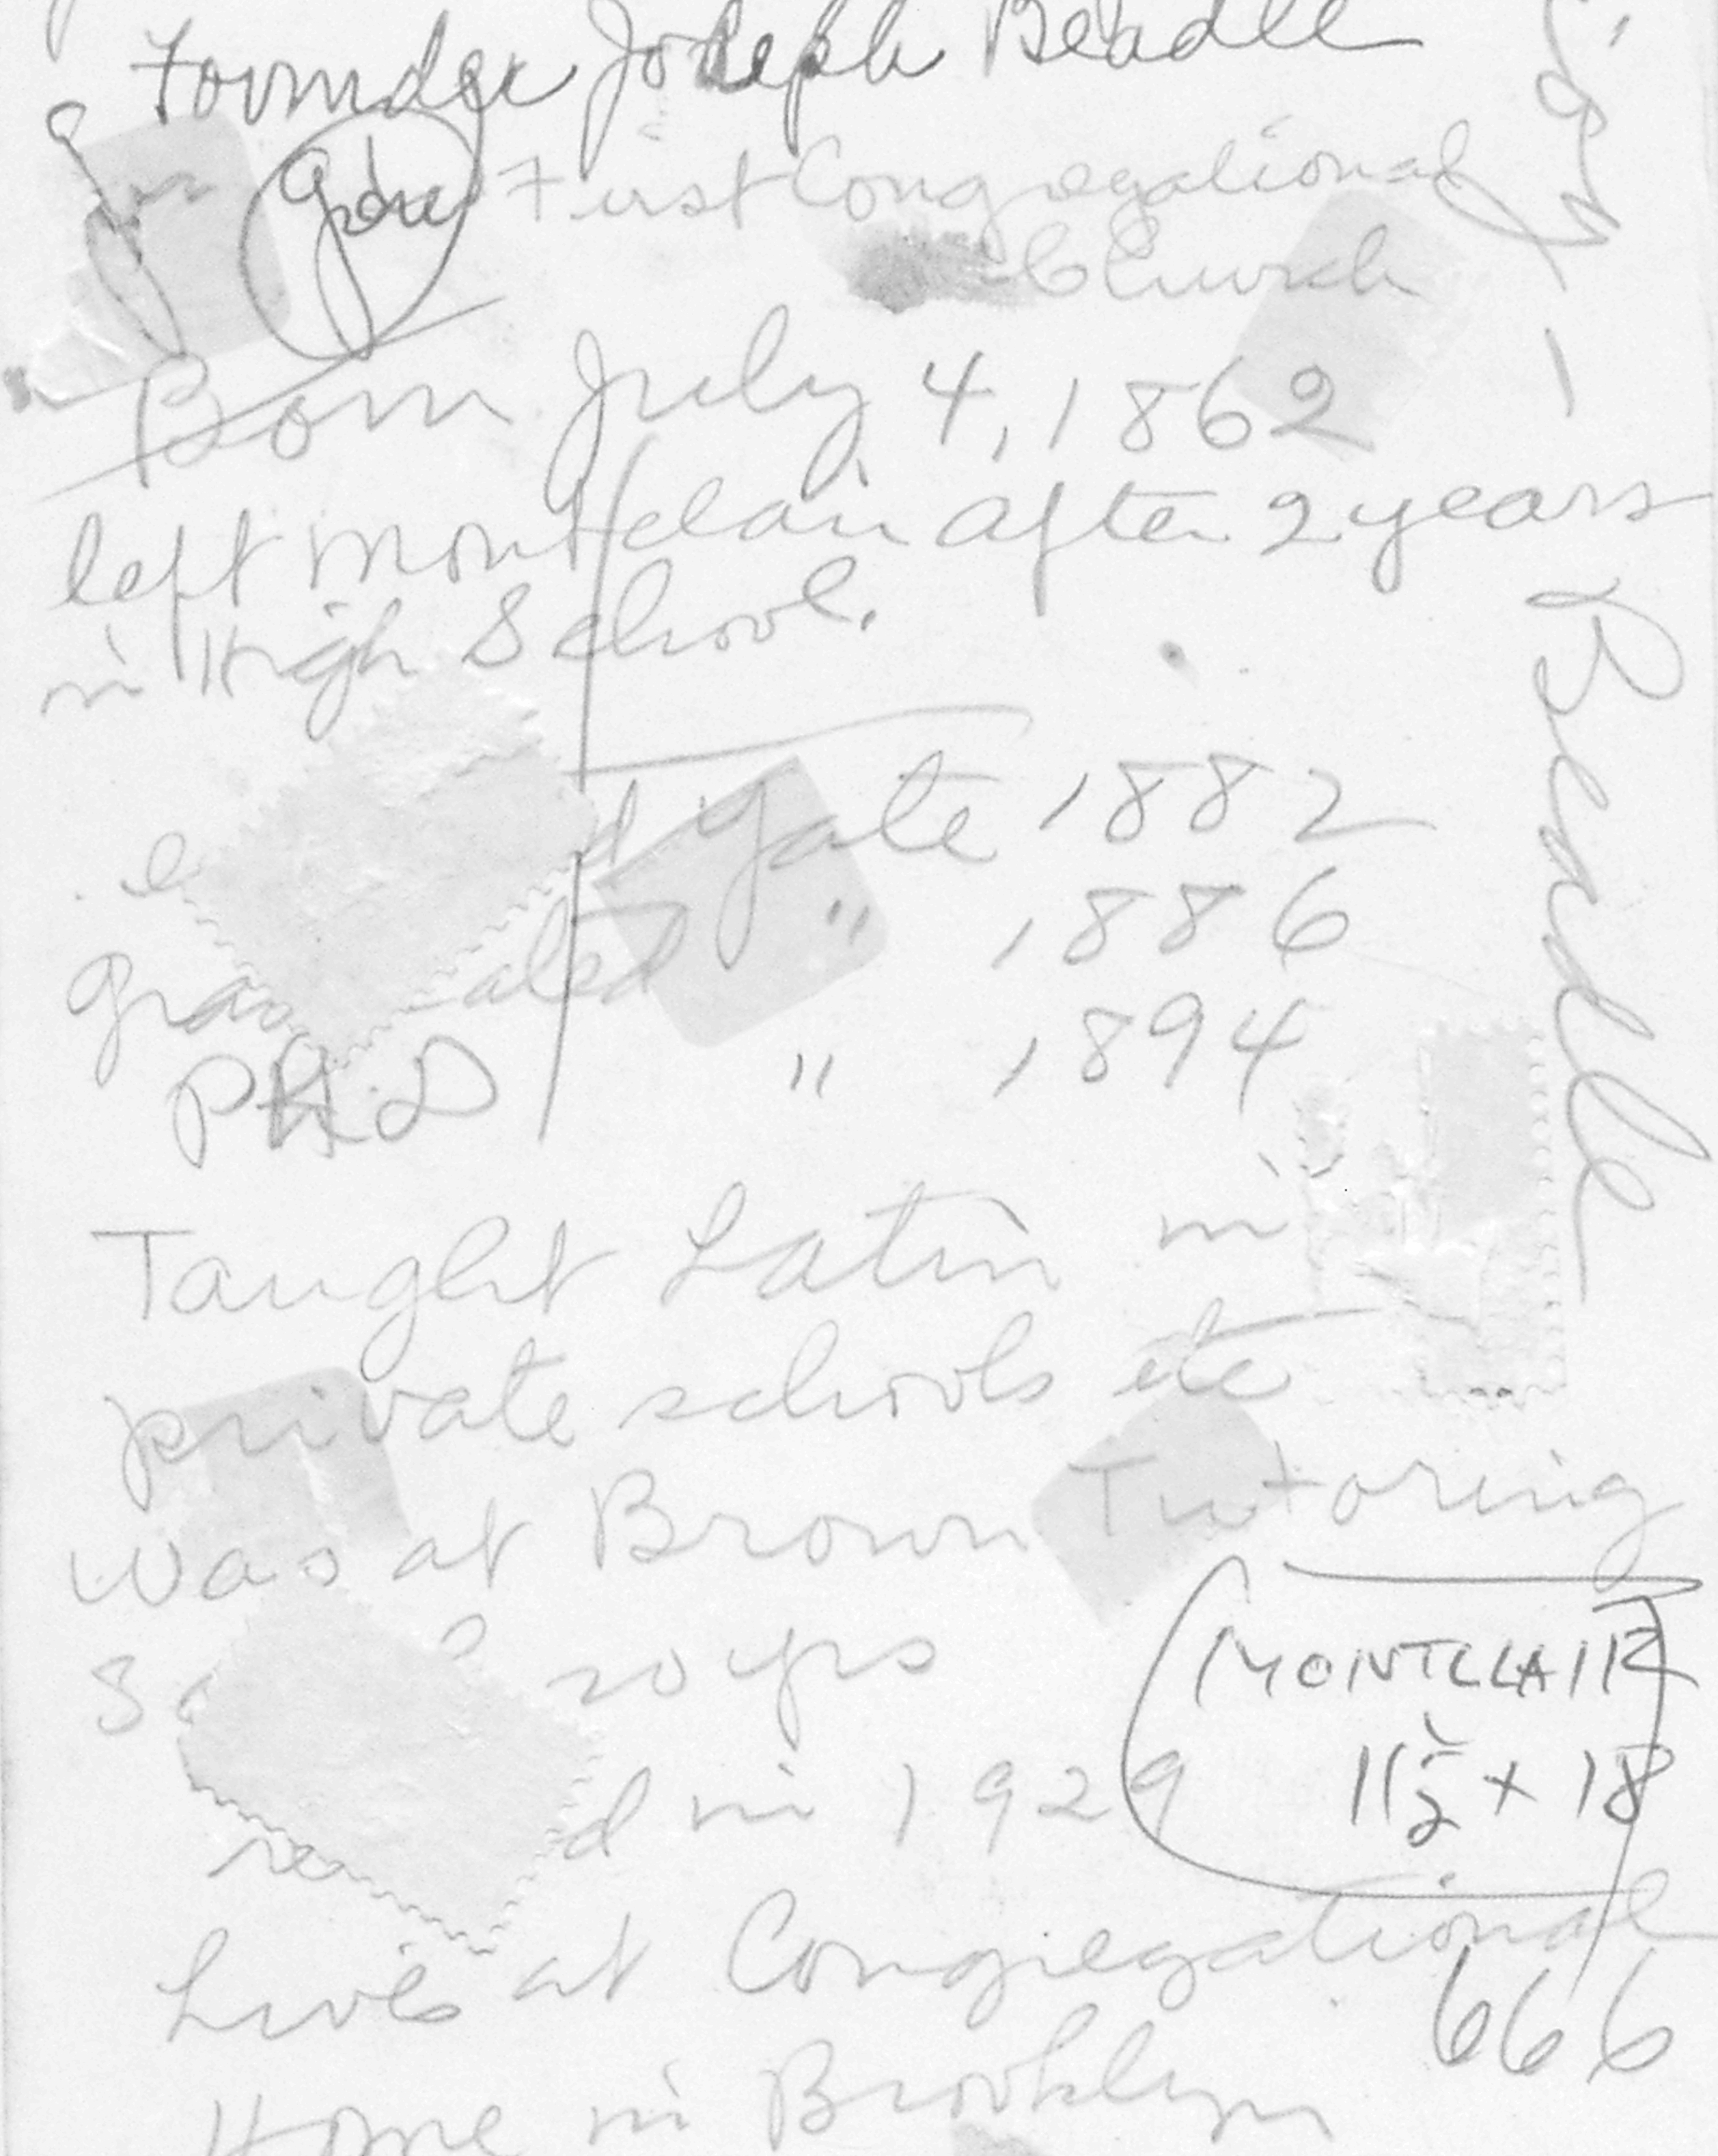 Founder Joseph Beadle
First Congregational
Church
Born July 4, 1862
left Montclair after 2 years
in High School.
e d Yale 1882
gra ated " 1886
PH.D " 1894
Taught Latin in
private schools etc
was at Brown Tutoring
20 yrs
d in 1929
Lives at Congregational
Home in Brooklyn
MONTCLAIR
11 1/2 x 18
666
Beadle